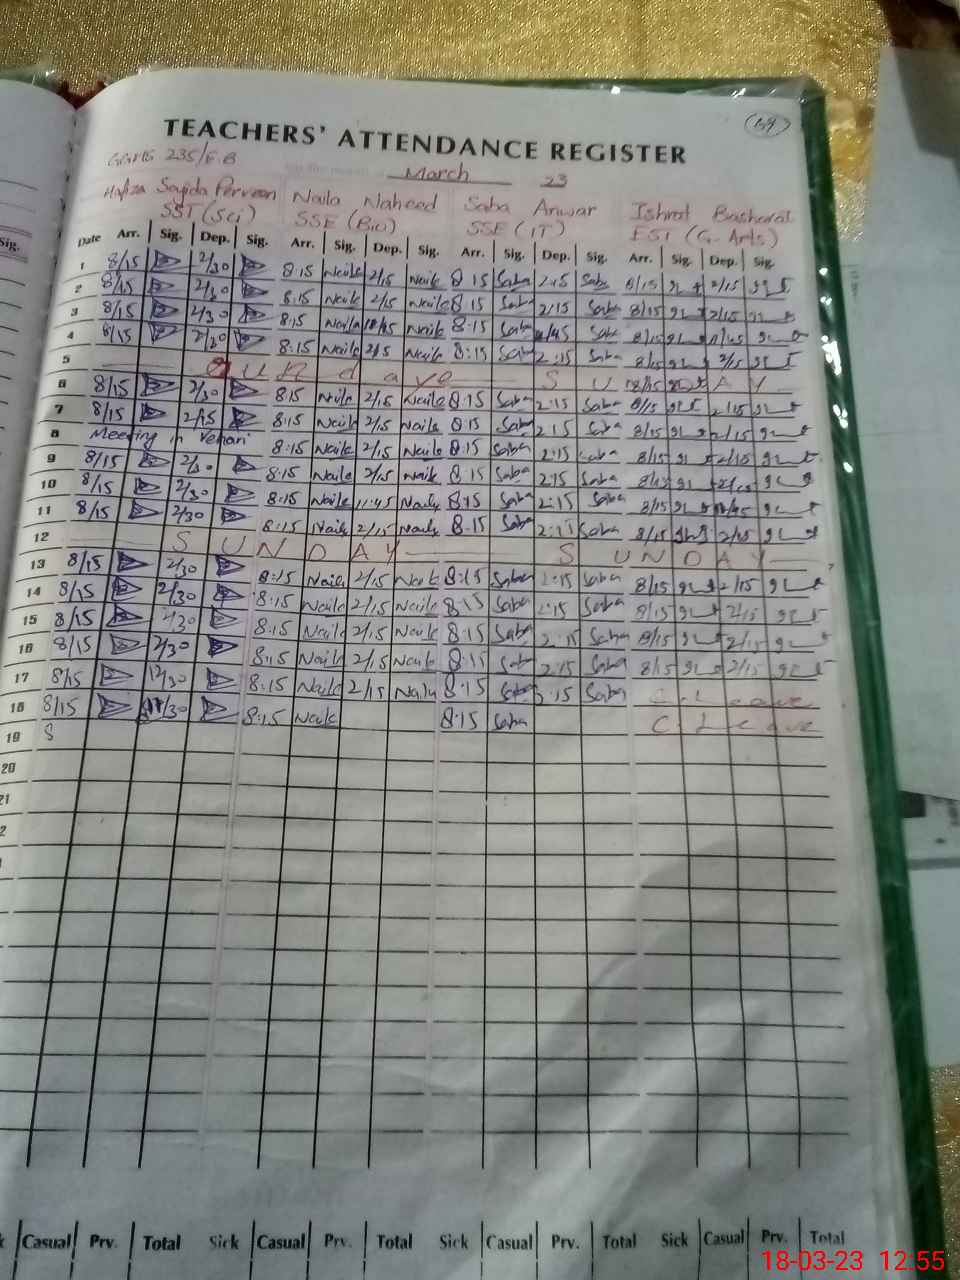 69
TEACHERS' ATTENDANCE REGISTER
GGHS 235/E.B
March 23
Hafiza Sajida Perveen Naila Naheed Saba Anwar Ishrat Basharat
SST (Sci) SSE (Bio) SSE (IT) EST (G. Arts)
Sig.
Date Arr. Sig. Dep. Sig. Arr. Sig. Dep. Sig. Arr. Sig. Dep. Sig. Arr. Sig. Dep. Sig.
1 8/15 2/30 8:15 Naila 2/15 Naila 8:15 Saba 2:15 Saba 8/15 2/15
2 8/15 2/30 8:15 Naila 2/15 Naila 8:15 Saba 2:15 Saba 8/15 2/15
3 8/15 2/30 8:15 Naila Naila 8:15 Saba Saba 8/15
4 8/15 2/30 8:15 Naila 2/15 Naila 8:15 Saba 2:15 Saba 8/15 2/15
5 Sunday SUNDAY
6 8/15 2/30 8:15 Naila 2/15 Naila 8:15 Saba 2:15 Saba 8/15 2/15
7 8/15 2/15 8:15 Naila 2/15 Naila 8:15 Saba 2:15 Saba 8/15 2/15
8 Meeting in Vehari 8:15 Naila 2/15 Naila 8:15 Saba 2:15 Saba 8/15 2/15
9 8/15 2/30 8:15 Naila 2/15 Naila 8:15 Saba 2:15 Saba 8/15
10 8/15 2/30 8:15 Naila 11:45 Naila 8:15 Saba 2:15 Saba 8/15
11 8/15 2/30 8:15 Naila 2/15 Naila 8:15 Saba Saba 8/15 2/15
12 SUNDAY SUNDAY
13 8/15 2/30 8:15 Naila 2/15 Naila 8:15 Saba 2:15 Saba 8/15 2/15
14 8/15 2/30 8:15 Naila 2/15 Naila 8:15 Saba 2:15 Saba 8/15 2/15
15 8/15 2/30 8:15 Naila 2/15 Naila 8:15 Saba 2:15 Saba 8/15 2/15
16 8/15 2/30 8:15 Naila 2/15 Naila 8:15 Saba 2:15 Saba 8/15 2/15
17 8/15 12/30 8:15 Naila 2/15 Naila 8:15 Saba Saba C Leave
18 8/15 8:15 Naila 8:15 Saba C Leave
19 8
20
21
Casual Prv. Total Sick Casual Prv. Total Sick Casual Prv. Total Sick Casual Prv. Total
18-03-23 12.55